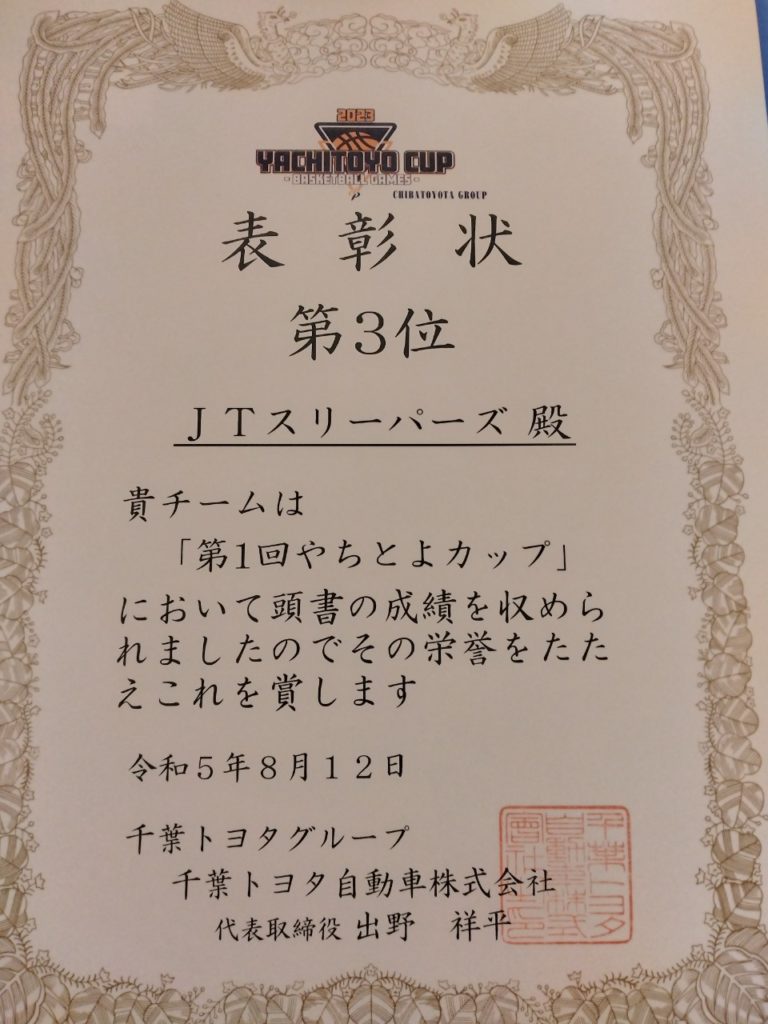 2023
YACHITOYO CUP
- BASKETBALL GAMES -
CHIBATOYOTA GROUP
表彰状
第3位
JTスリーパーズ 殿
貴チームは
「第1回やちとよカップ」
において頭書の成績を収めら
れましたのでその栄誉をたた
えこれを賞します
令和5年8月12日
千葉トヨタグループ
千葉トヨタ自動車株式会社
代表取締役 出野 祥平